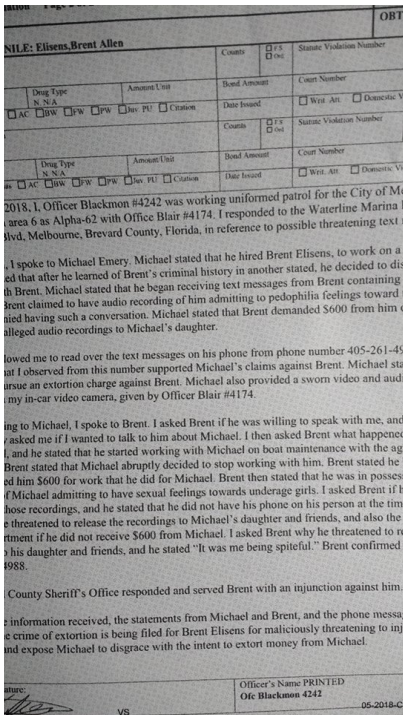 OBT
NILE: Elisens,Brent Allen
Counts F.S. Ord. Statute Violation Number
Drug Type Amount/Unit Bond Amount Court Number
N N/A
AC BW FW PW Juv PU Citation Date Issued Writ. Att. Domestic V
Counts F.S. Ord. Statute Violation Number
Drug Type Amount/Unit Bond Amount Court Number
N N/A
AC BW FW PW Juv PU Citation Date Issued Writ. Att. Domestic Vi
2018, I, Officer Blackmon #4242 was working uniformed patrol for the City of Me
area 6 as Alpha-62 with Office Blair #4174. I responded to the Waterline Marina
Blvd, Melbourne, Brevard County, Florida, in reference to possible threatening text
, I spoke to Michael Emery. Michael stated that he hired Brent Elisens, to work on a
ed that after he learned of Brent's criminal history in another stated, he decided to dis
th Brent. Michael stated that he began receiving text messages from Brent containing
Brent claimed to have audio recording of him admitting to pedophilia feelings toward
nied having such a conversation. Michael stated that Brent demanded $600 from him
alleged audio recordings to Michael's daughter.
lowed me to read over the text messages on his phone from phone number 405-261-49
hat I observed from this number supported Michael's claims against Brent. Michael sta
ursue an extortion charge against Brent. Michael also provided a sworn video and audi
my in-car video camera, given by Officer Blair #4174.
ing to Michael, I spoke to Brent. I asked Brent if he was willing to speak with me, and
y asked me if I wanted to talk to him about Michael. I then asked Brent what happened
l, and he stated that he started working with Michael on boat maintenance with the ag
Brent stated that Michael abruptly decided to stop working with him. Brent stated he
ed him $600 for work that he did for Michael. Brent then stated that he was in posses
of Michael admitting to have sexual feelings towards underage girls. I asked Brent if h
those recordings, and he stated that he did not have his phone on his person at the tim
e threatened to release the recordings to Michael's daughter and friends, and also the
rtment if he did not receive $600 from Michael. I asked Brent why he threatened to re
o his daughter and friends, and he stated “It was me being spiteful.” Brent confirmed
4988.
County Sheriff's Office responded and served Brent with an injunction against him.
e information received, the statements from Michael and Brent, and the phone messa
e crime of extortion is being filed for Brent Elisens for maliciously threatening to inj
and expose Michael to disgrace with the intent to extort money from Michael.
ature:
Officer's Name PRINTED
Ofc Blackmon 4242
VS
05-2018-C